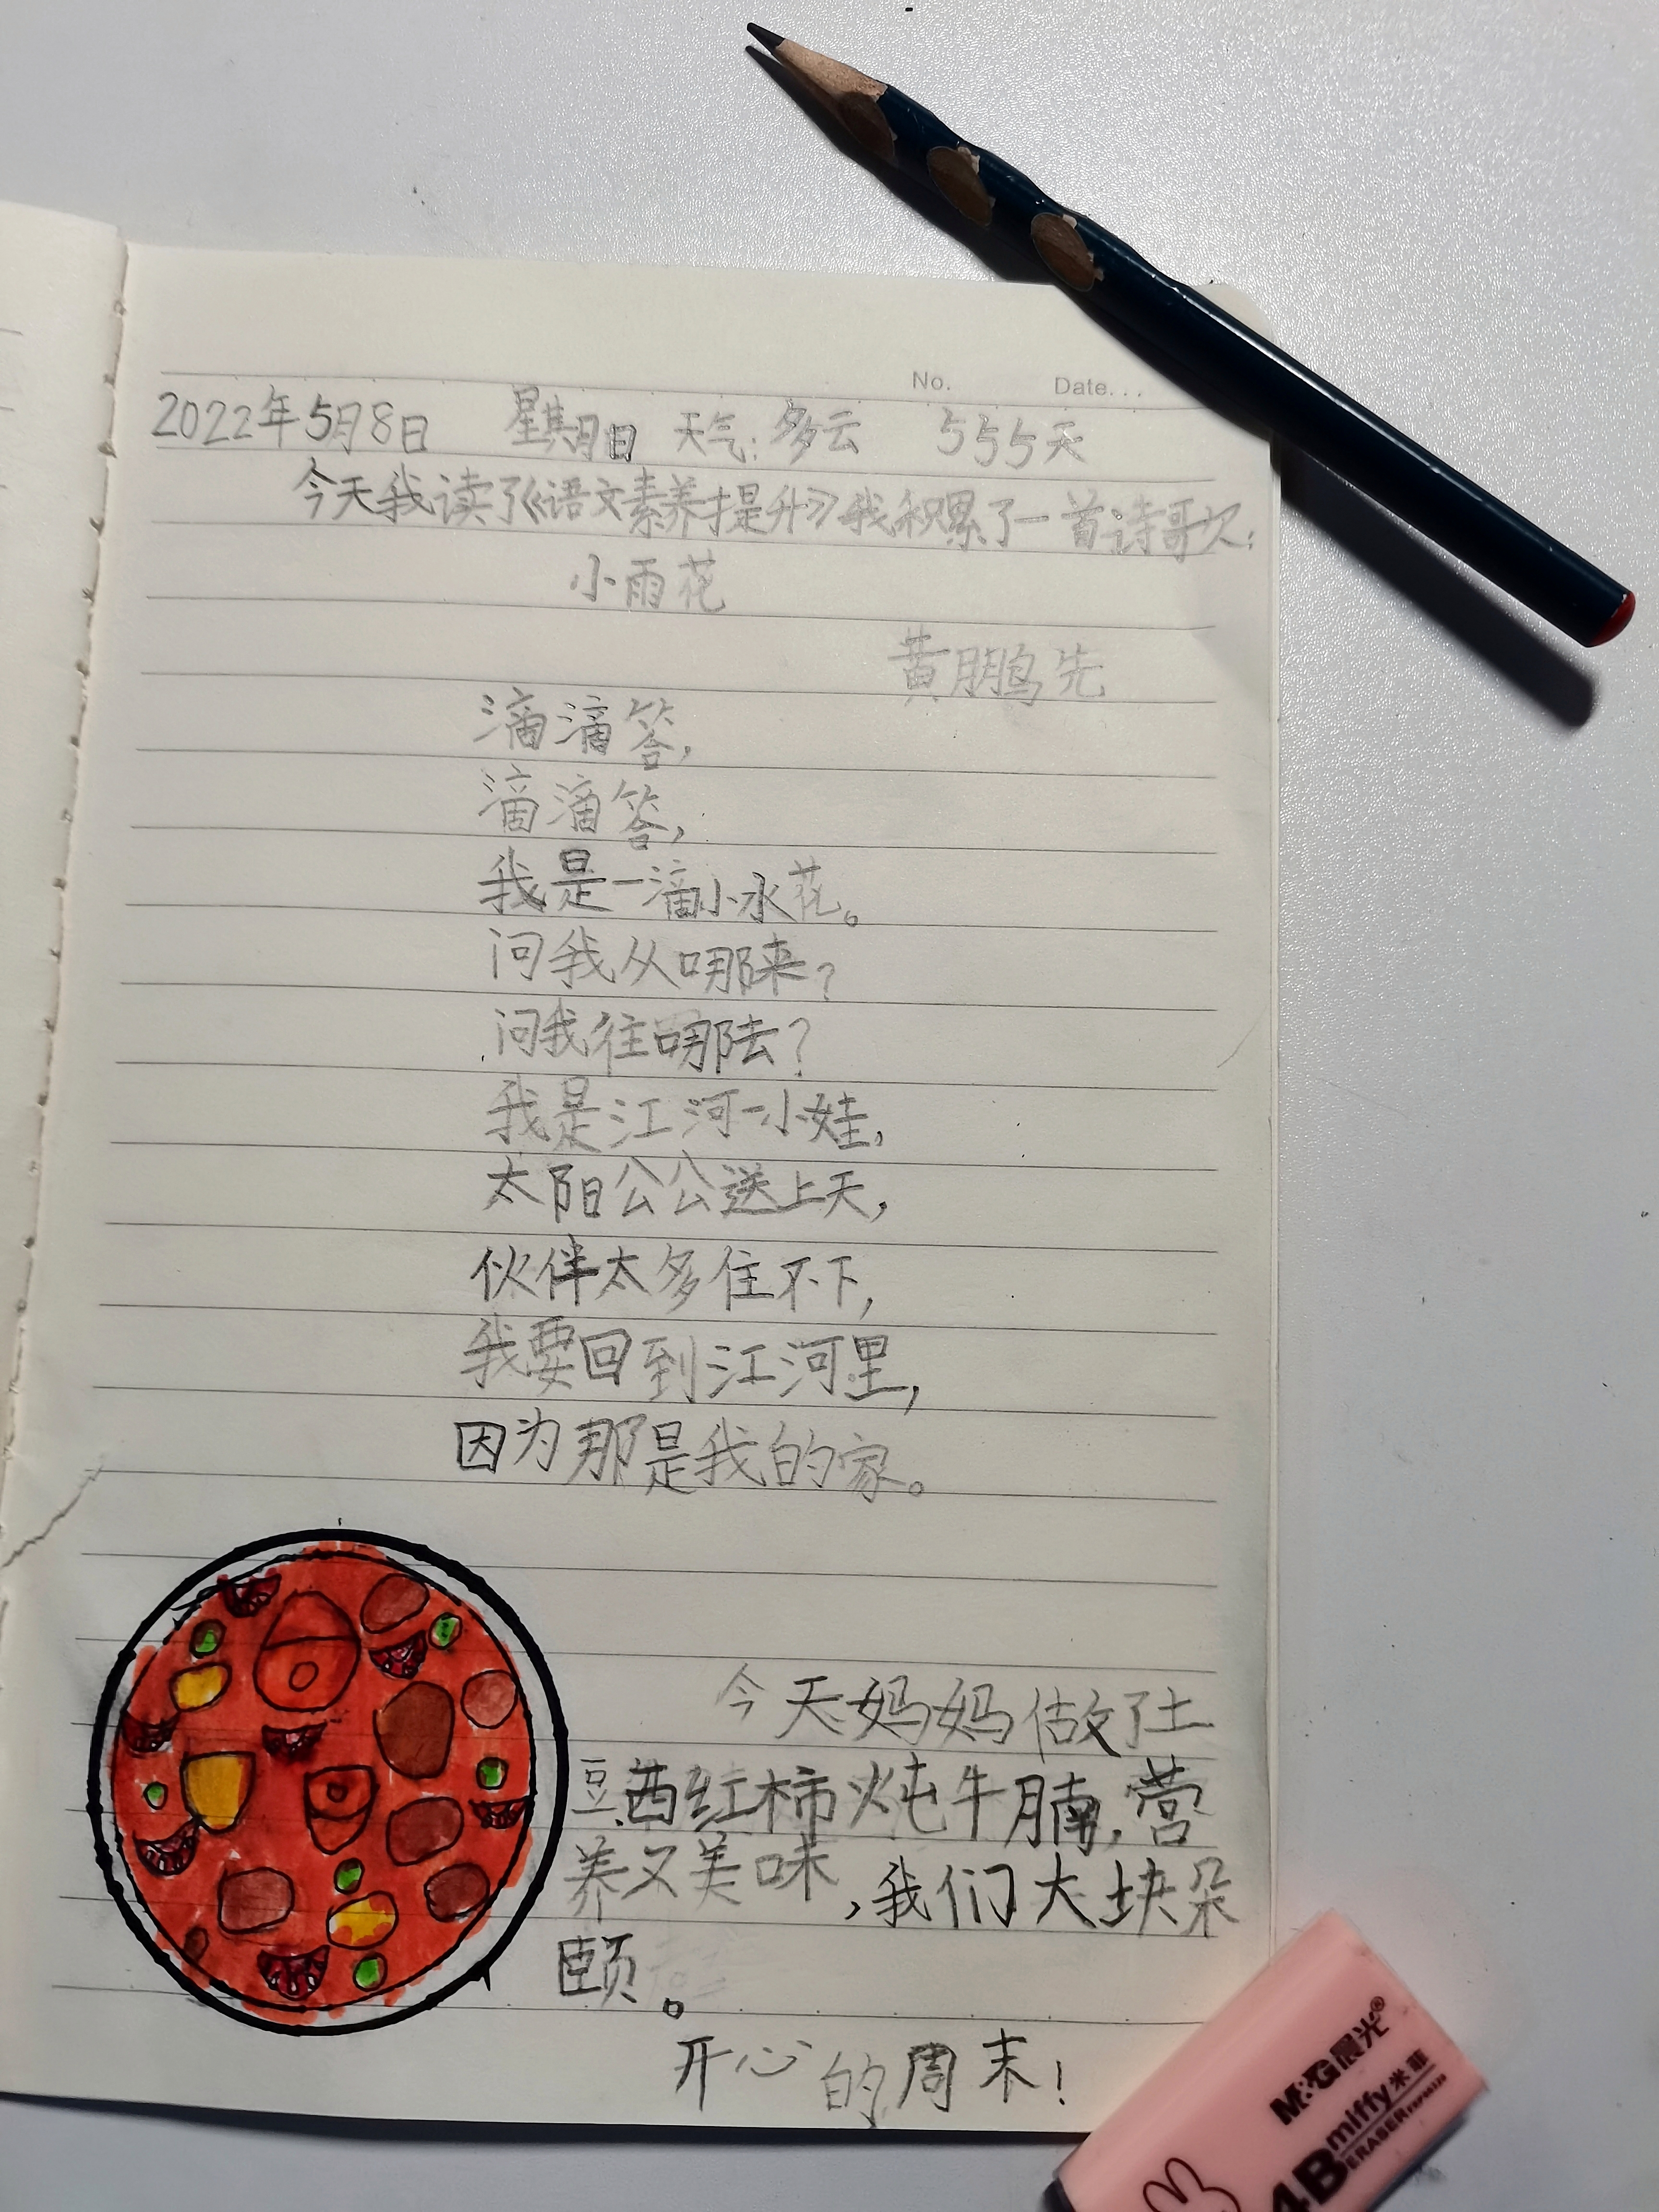 No. Date...
2022年5月8日 星期日 天气：多云 555天
今天我读了《语文素养提升》我积累了一首诗歌欠：
小雨花
黄鹏先
滴滴答，
滴滴答，
我是一滴小水花。
问我从哪来？
问我往哪去？
我是江河一小娃，
太阳公公送上天，
伙伴太多住不下，
我要回到江河里，
因为那是我的家。
今天妈妈做了土
豆西红柿炖牛腩，营
养又美味，我们大块朵
颐。
开心的周末！
M&G晨光®
miffy米菲
4B ERASER